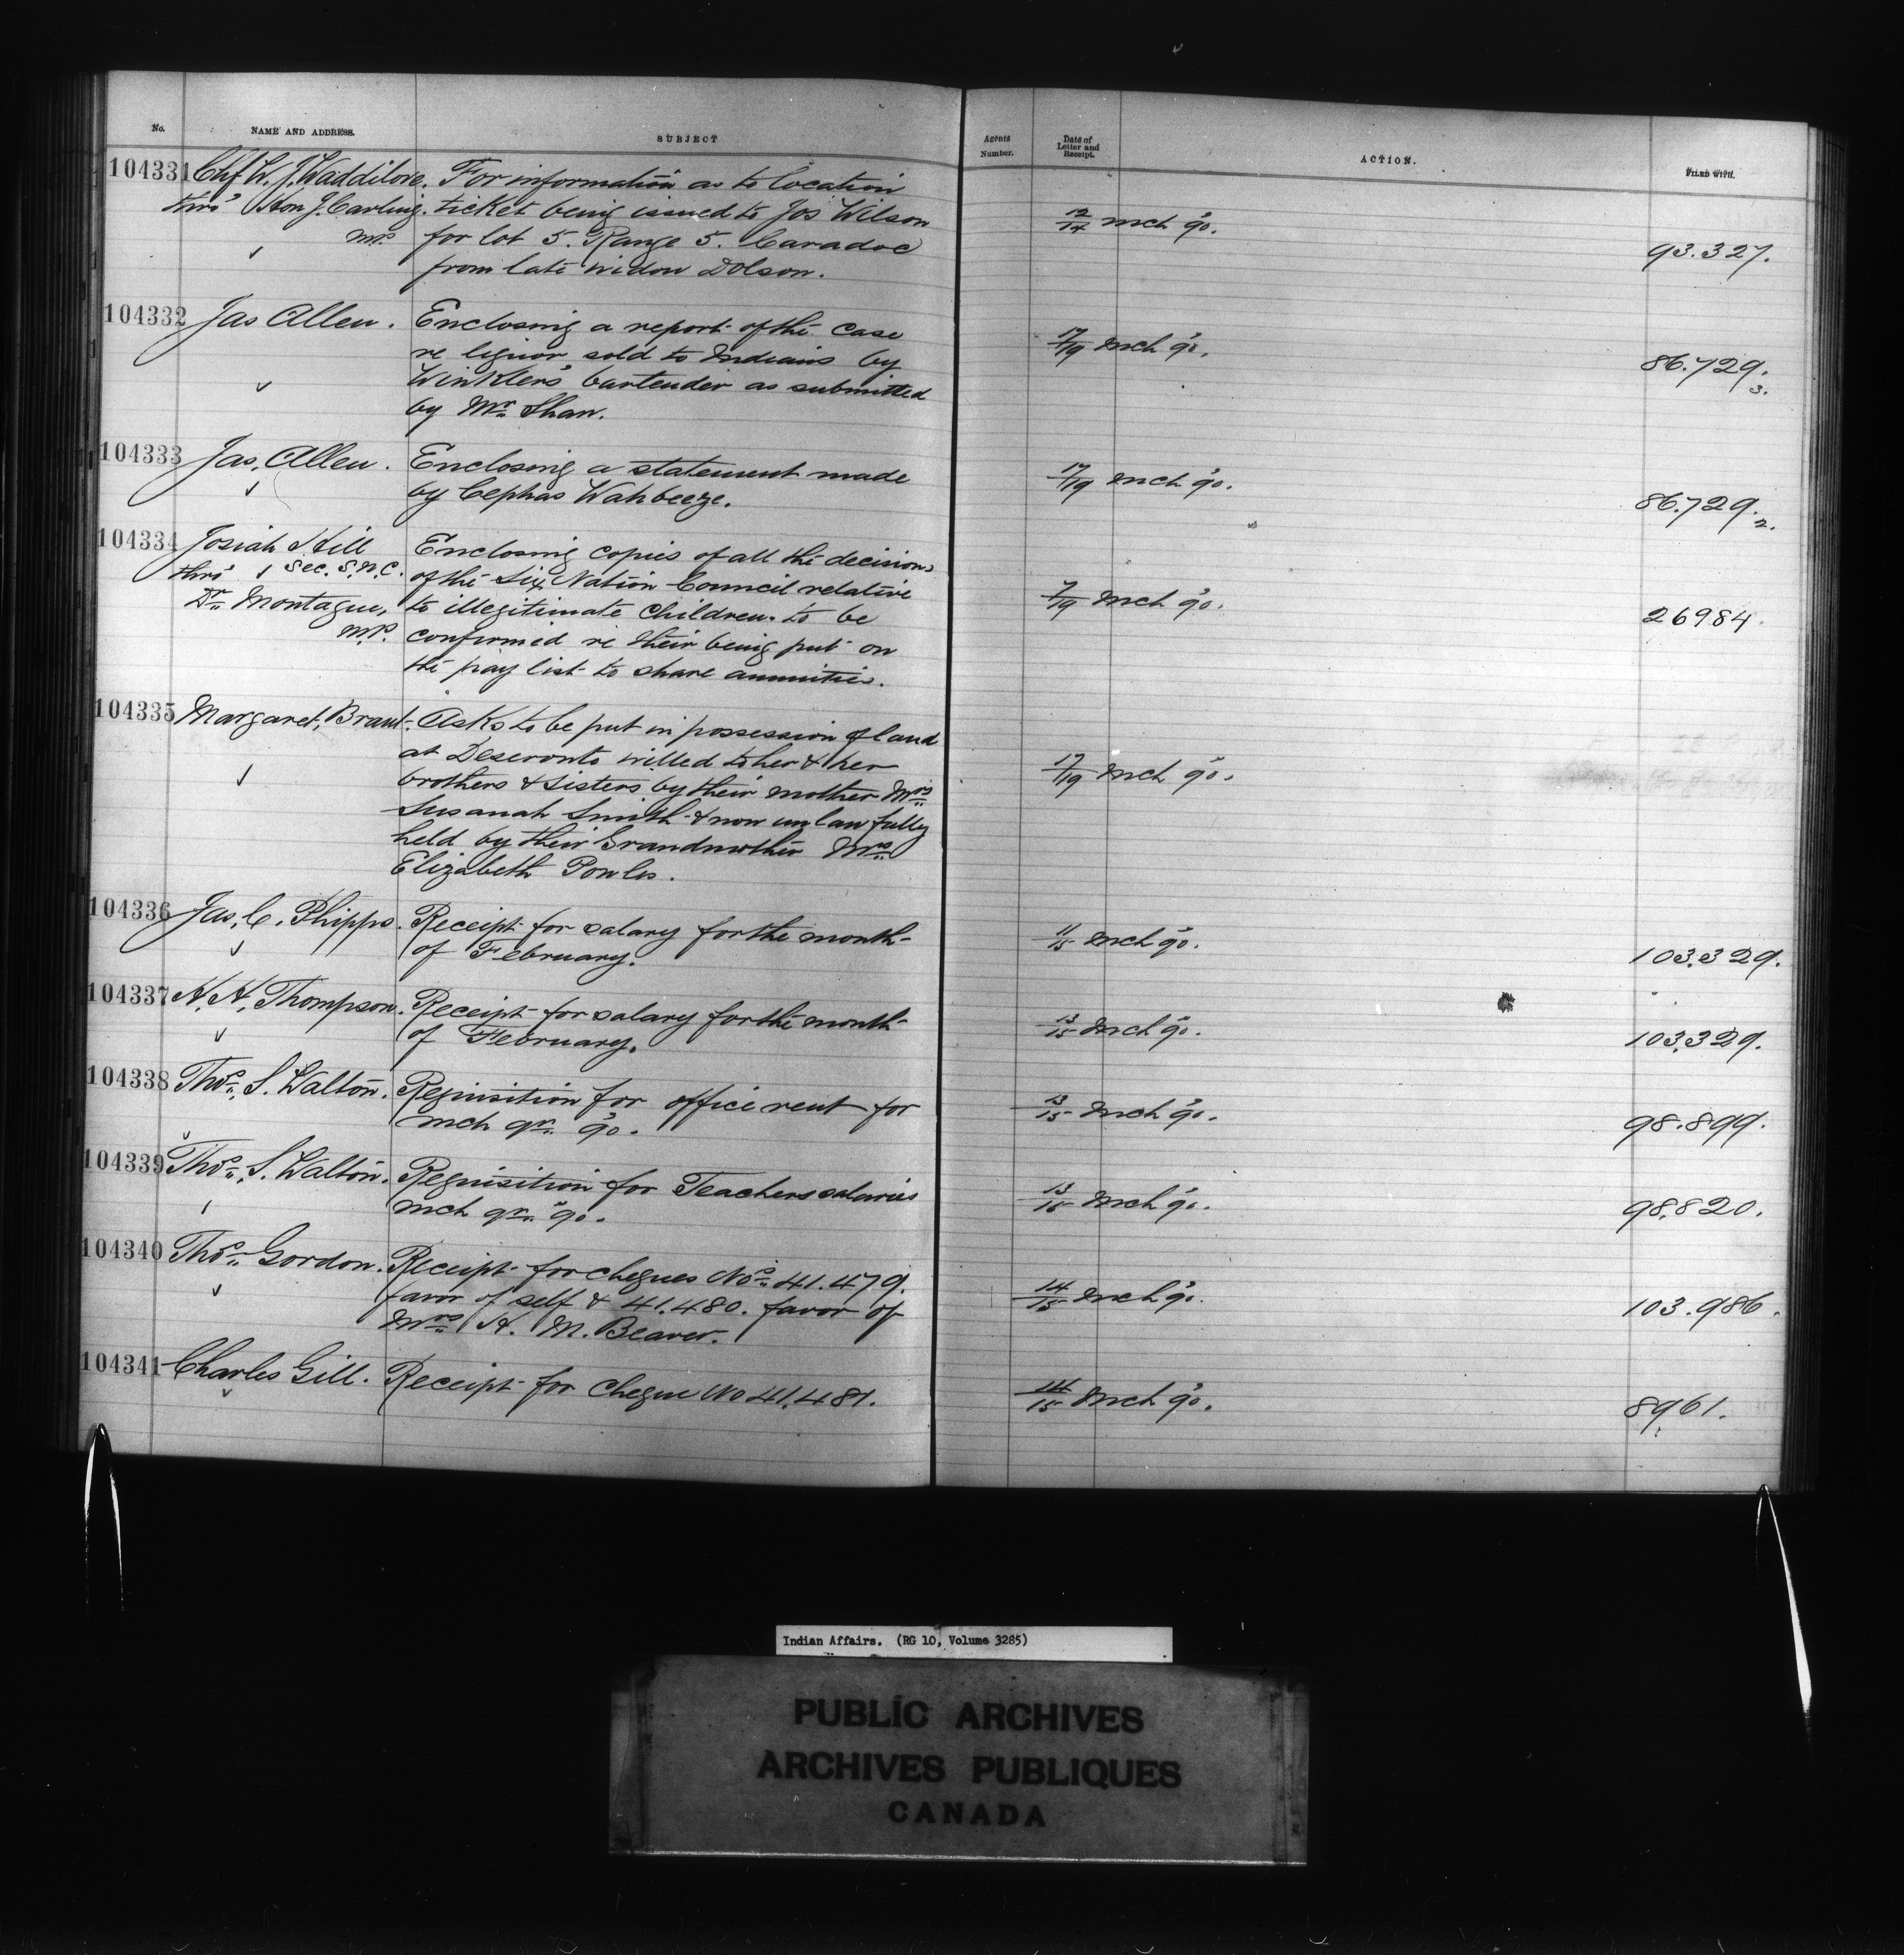 No. NAME AND ADDRESS. SUBJECT
104331 Chf W. J. Waddilove. For information as to location
thro' Hon J. Carling. ticket being issued to Jos Wilson
M.P. for lot 5. Range 5. Caradoc
from late widow Dolson.
104332 Jas Allen. Enclosing a report of the case
re liquor sold to Indians by
Winkler's bartender as submitted
by Mr. Shaw.
104333 Jas, Allen. Enclosing a statement made
by Cephas Wahbeeze.
104334 Josiah Hill Enclosing copies of all the decisions
thro' Sec. S.N.C. of the Six Nation Council relative
Dr. Montague, to illegitimate children. to be
M.P. confirmed re their being put on
the pay list to share annuities.
104335 Margaret, Brant. Asks to be put in possession of land
at Deseronto willed to her & her
brothers & sisters by their mother Mrs
Susanah Smith & now unlawfully
held by their Grandmother Mrs
Elizabeth Powles.
104336 Jas, C. Phipps. Receipt for salary for the month
of February.
104337 H. H. Thompson. Receipt for salary for the month
of February.
104338 Thos. S. Walton. Requisition for office rent for
Mch qr. '90.
104339 Thos. S. Walton. Requisition for Teachers salaries
Mch qr. '90.
104340 Thos. Gordon. Receipt for cheques Nos. 41.479.
favor of self & 41.480. favor of
Mrs. H. M. Beaver.
104341 Charles Gill. Receipt for cheque No 41,481.
Agents Number. Date of Letter and Receipt. ACTION. FILED WITH.
12/14 Mch '90. 93.327.
17/19 Mch '90. 86.729. 3.
17/19 Mch '90. 86.729. 2.
7/19 Mch '90. 26984.
17/19 Mch '90.
11/15 Mch '90. 103.329.
13/15 Mch '90. 103.329.
13/15 Mch '90. 98.899.
13/15 Mch '90. 98.820.
14/15 Mch '90. 103.986.
14/15 Mch '90. 8961.
Indian Affairs. (RG 10, Volume 3285)
PUBLIC ARCHIVES
ARCHIVES PUBLIQUES
CANADA